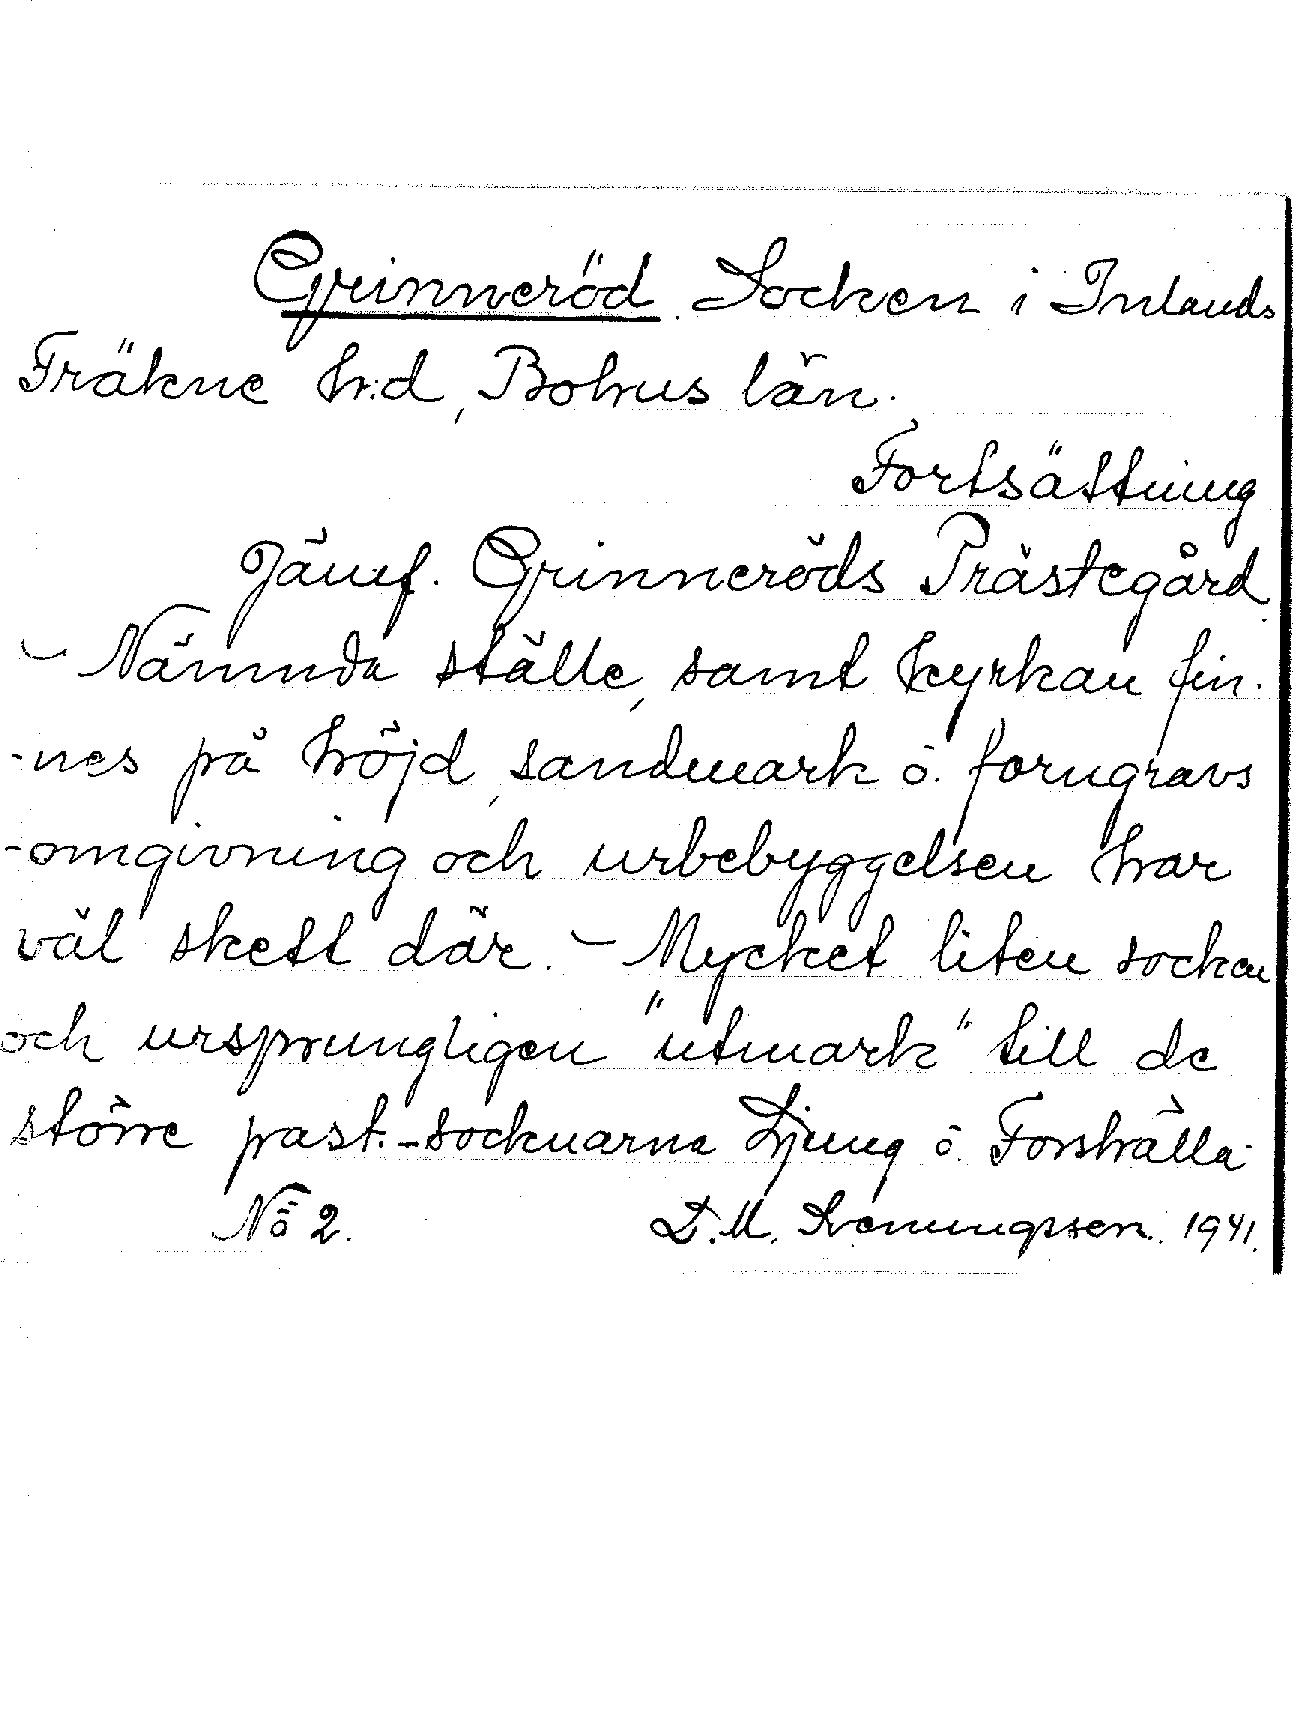 Grinneröd. Socken i Inlands
Fräkne h:d, Bohus län.
Fortsättning
Jämf. Grinneröds Prästegård.
– Nämnda ställe, samt kyrkan fin-
-nes på höjd, sandmark o. forngravs
-omgivning och urbebyggelsen har
väl skett där. – Mycket liten socken
och ursprungligen "utmark" till de
större past.-socknarna Ljung o. Forshälla
No 2. D. M. 1941.